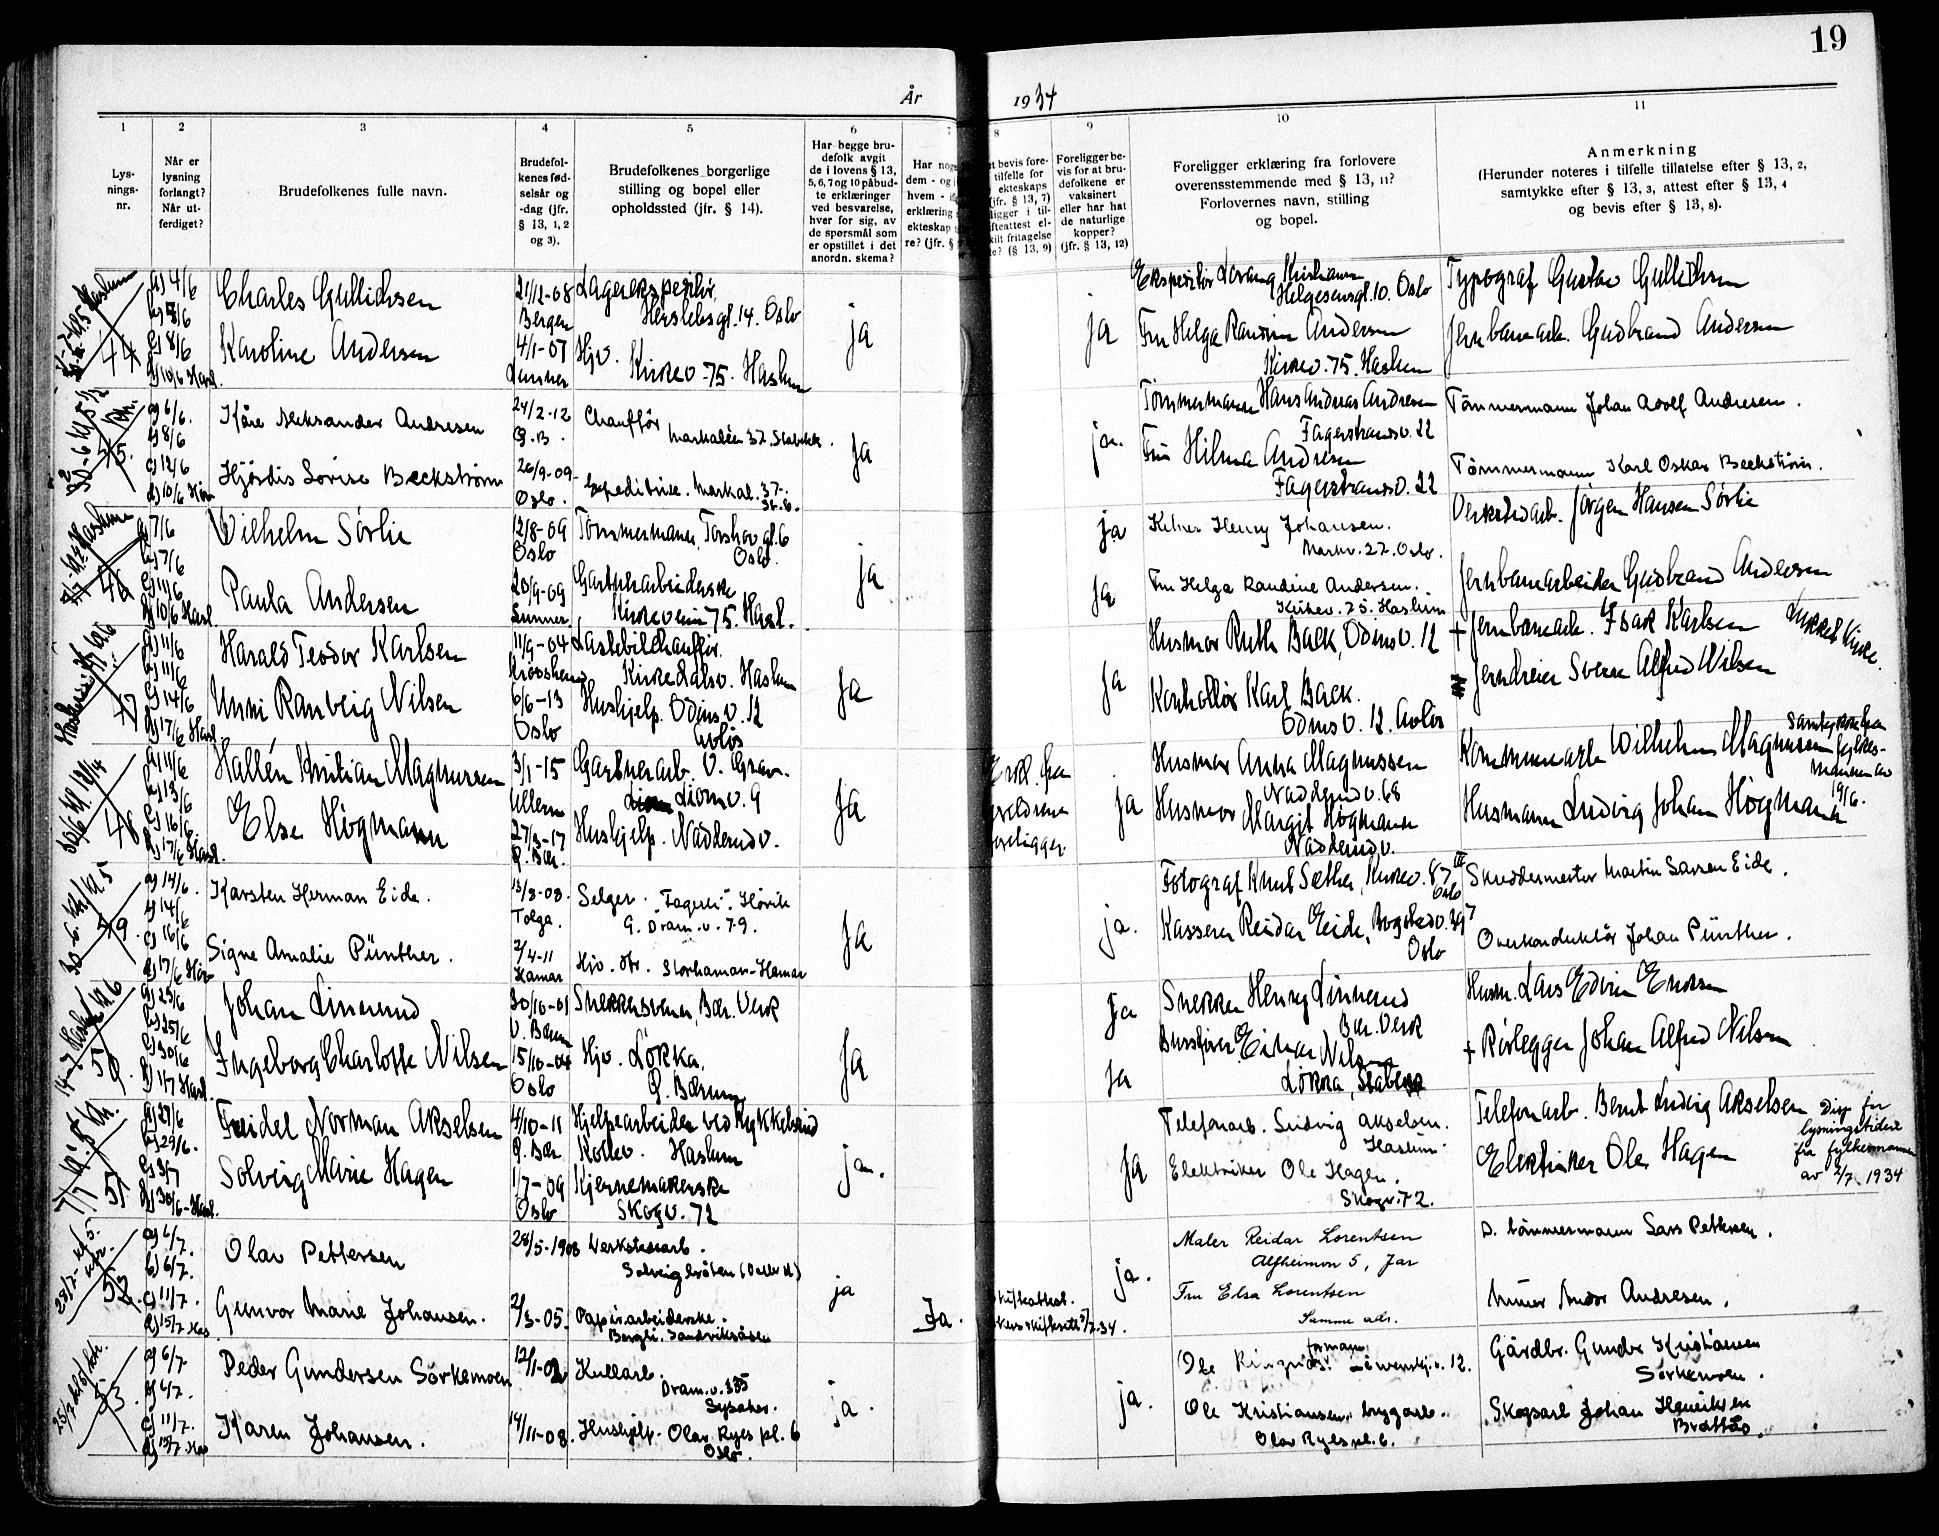 19
År 1934
1 2 3 4 5 6 7 8 9 10 11
Lys-
nings-
nr.
Når er
lysning
forlangt?
Når ut-
ferdiget?
Brudefolkenes fulle navn.
Brudefol-
kenes fød-
selsår og
-dag (jfr.
§ 13, 1, 2
og 3).
Brudefolkenes borgerlige
stilling og bopel eller
opholdssted (jfr. § 14).
Har begge bru-
defolk avgit
de i lovens § 13,
5, 6, 7 og 10 påbud-
te erklæringer
ved besvarelse,
hver for sig, av
de spørsmål som
er opstillet i det
anordn. skema?
Har nog
dem - og i
hvem - i
erklæring
ekteskap
re? (jfr. §
t bevis fore-
tilfelle for
ekteskaps
(jfr. § 13, 7)
ligger i til-
fteattest el-
kilt fritagelse
e? (§ 13, 9)
Foreligger be-
vis for at bru-
defolkene er
vaksinert
eller har hat
de naturlige
kopper?
(jfr. § 13, 12)
Foreligger erklæring fra forlovere
overensstemmende med § 13, 11?
Forlovernes navn, stilling
og bopel.
Anmerkning
(Herunder noteres i tilfelle tillatelse efter § 13, 2,
samtykke efter § 13, 3, attest efter § 13, 4
og bevis efter § 13, 8).
44
a) 4/6
b) 8/6
c) 8/6
d) 10/6 Hasl.
Charles Gullichsen
21/12-08
Bergen
Lagerekspeditør,
Herslebsgt. 14. Oslo
ja
ja
Helgesensgt. 10. Oslo
Typograf Gustav Gullichsen
Karoline Andersen
4/1-07
Lunner
Hjv.
Kirkev. 75. Haslum
Fru Helga Randine Andersen
Kirkev. 75. Haslum
Jernbanearb. Gudbrand Andersen
45.
a) 6/6.
b) 8/6
c) 12/6
d) 10/6 Høv.
Kåre Aleksander Andresen
24/2-12
Ø.B.
Chauffør
Markalléen 37. Stabekk.
ja
ja.
Tømmermann Hans Andreas Andresen
Fagerstrandv. 22
Tømmermann Johan Adolf Andresen.
Hjørdis Lovise Beckstrøm
26/9-09
Oslo.
Expeditrise. Markal. 37.
Fru Hilma Andresen
Fagerstrandv. 22
Tømmermann Karl Oskar Beckstrøm.
46
a) 7/6
b) 7/6
c) 11/6
d) 10/6 Hasl.
Wilhelm Sørlie
12/8-09
Oslo
Tømmermann, Torshovgt. 6
Oslo.
ja
ja
Kelner Henry Johansen.
Markv. 27. Oslo.
Verkstedarb. Jørgen Hansen Sørlie
Paula Andersen
20/9-09
Lunner
Gartneriarbeiderske
Kirkeveien 75. Hasl.
ja
Fru Helga Randine Andersen.
Kirkev. 75. Haslum
Jernbanearbeider Gudbrand Andersen
47
a) 11/6
b) 11/6
c) 14/6
d) 17/6 Hasl
Harald Teodor Karlsen
11/9-04
Lastebilchauffør.
Kirkedalsv. Haslum
ja
ja
Husmor Ruth Back, Odinsv. 12
+ Jernbanearb. Isak Karlsen
Unni Ranveig Nilsen
6/6-13
Oslo
Hushjelp. Odinsv. 12
Avløs
Kontrollør Karl Back.
Odinsv. 12. Avløs
Jerndreier Sverre Alfred Nilsen
48
a) 11/6
b) 13/6
c) 16/6
d) 17/6 Hasl.
Hallén Kristian Magnussen
3/1-15
Ullern
Gartnerarb. V. Grav.
Liomv. 9
ja
foreligger
ja
Husmor Anna Magnussen
Nadderudv. 68
Kommunearb. Wilhelm Magnussen
Samtykke fra
fylkes-
mannen av
19/6.
Else Høgmann
27/3-17
Ø. Bær.
Hushjelp. Nadderudv.
Husmor Margit Høgmann
Nadderudv.
Husmann Ludvig Johan Høgmann
49
a) 14/6.
b) 14/6
c) 16/6
d) 17/6 Høv
Karsten Herman Eide.
13/3-08.
Tolga.
Selger. "Fagerli". Høvik
G. Dram. v. 79.
ja
ja.
Fotograf Knut Sæther, Kirkev. 87 III
Oslo
Skreddermester Martin Larsen Eide.
Signe Amalie Pünther.
2/4-11
Hamar
Hjv. dtr. Storhamar-Hamar
Kasserer Reidar Eide, Bogstadv. 39
Oslo
Overkonduktør Johan Pünther.
50.
a) 25/6
b) 25/6
c) 30/6
d) 1/7 Hasl.
Johan Linnerud
30/10-01
V. Bærum
Snekkersvenn, Bær. Verk
ja
ja
Snekker Henry Linnerud
Bær. Verk
Husm. Lars Edvin Eriksen
Ingeborg Charlotte Nilsen
15/10-04
Oslo
Hjv. Løkka,
Ø. Bærum
ja
Bussfører Einar Nilsen
Løkka, Stabekk
+ Rørlegger Johan Alfred Nilsen
51
a) 29/6
b) 29/6.
c) 3/7
d) 30/6 - Hasl.
Freidel Norman Akselsen
4/10-11
Ø. Bær
Hjelpearbeider ved Rykkelsrud
Kollev. Haslum
ja.
ja
Telefonarb. Ludvig Akselsen.
Haslum.
Telefonarb. Bernt Ludvig Akselsen
Disp. for
lysningstidene
fra fylkesmannen
av 2/7. 1934
Solveig Marie Hagen
1/7-09
Oslo
Kjernemakerske
Skogv. 72
Elektriker Ole Hagen.
Skogv. 72.
Elektriker Ole Hagen
52.
a) 6/7.
b) 6/7.
c) 11/7.
d) 15/7 Has
Olav Pettersen
28/5-1908
Verkstedarb.
ja
ja.
Maler Reidar Lorentsen
Alfheimvn 5, Jar
D. tømmermann Lars Pettersen.
Gunvor Marie Johansen.
2/3-05.
Papirarbeiderske.
Bergli, Sandviksåsen
Ja.
Fru Elsa Lorentsen
Samme adr.
Murer Andor Andresen.
53.
a) 6/7.
b) 6/7.
c) 11/7.
d) 15/7 Has
Peder Gundersen Sørkemoen
12/1-02
Kullarb.
Dram. v. 335
Lysaker.
ja.
ja.
Ole Ringnes. formann
Gårdbr. Gunder Kristiansen
Sørkemoen.
Karen Johansen.
14/11-08.
Hushjelp. Olav Ryes pl. 6
Oslo.
Ole Kristiansen. bryggarb.
Olav Ryes pl. 6.
Skogsarb. Johan Henriksen
Bråttås.